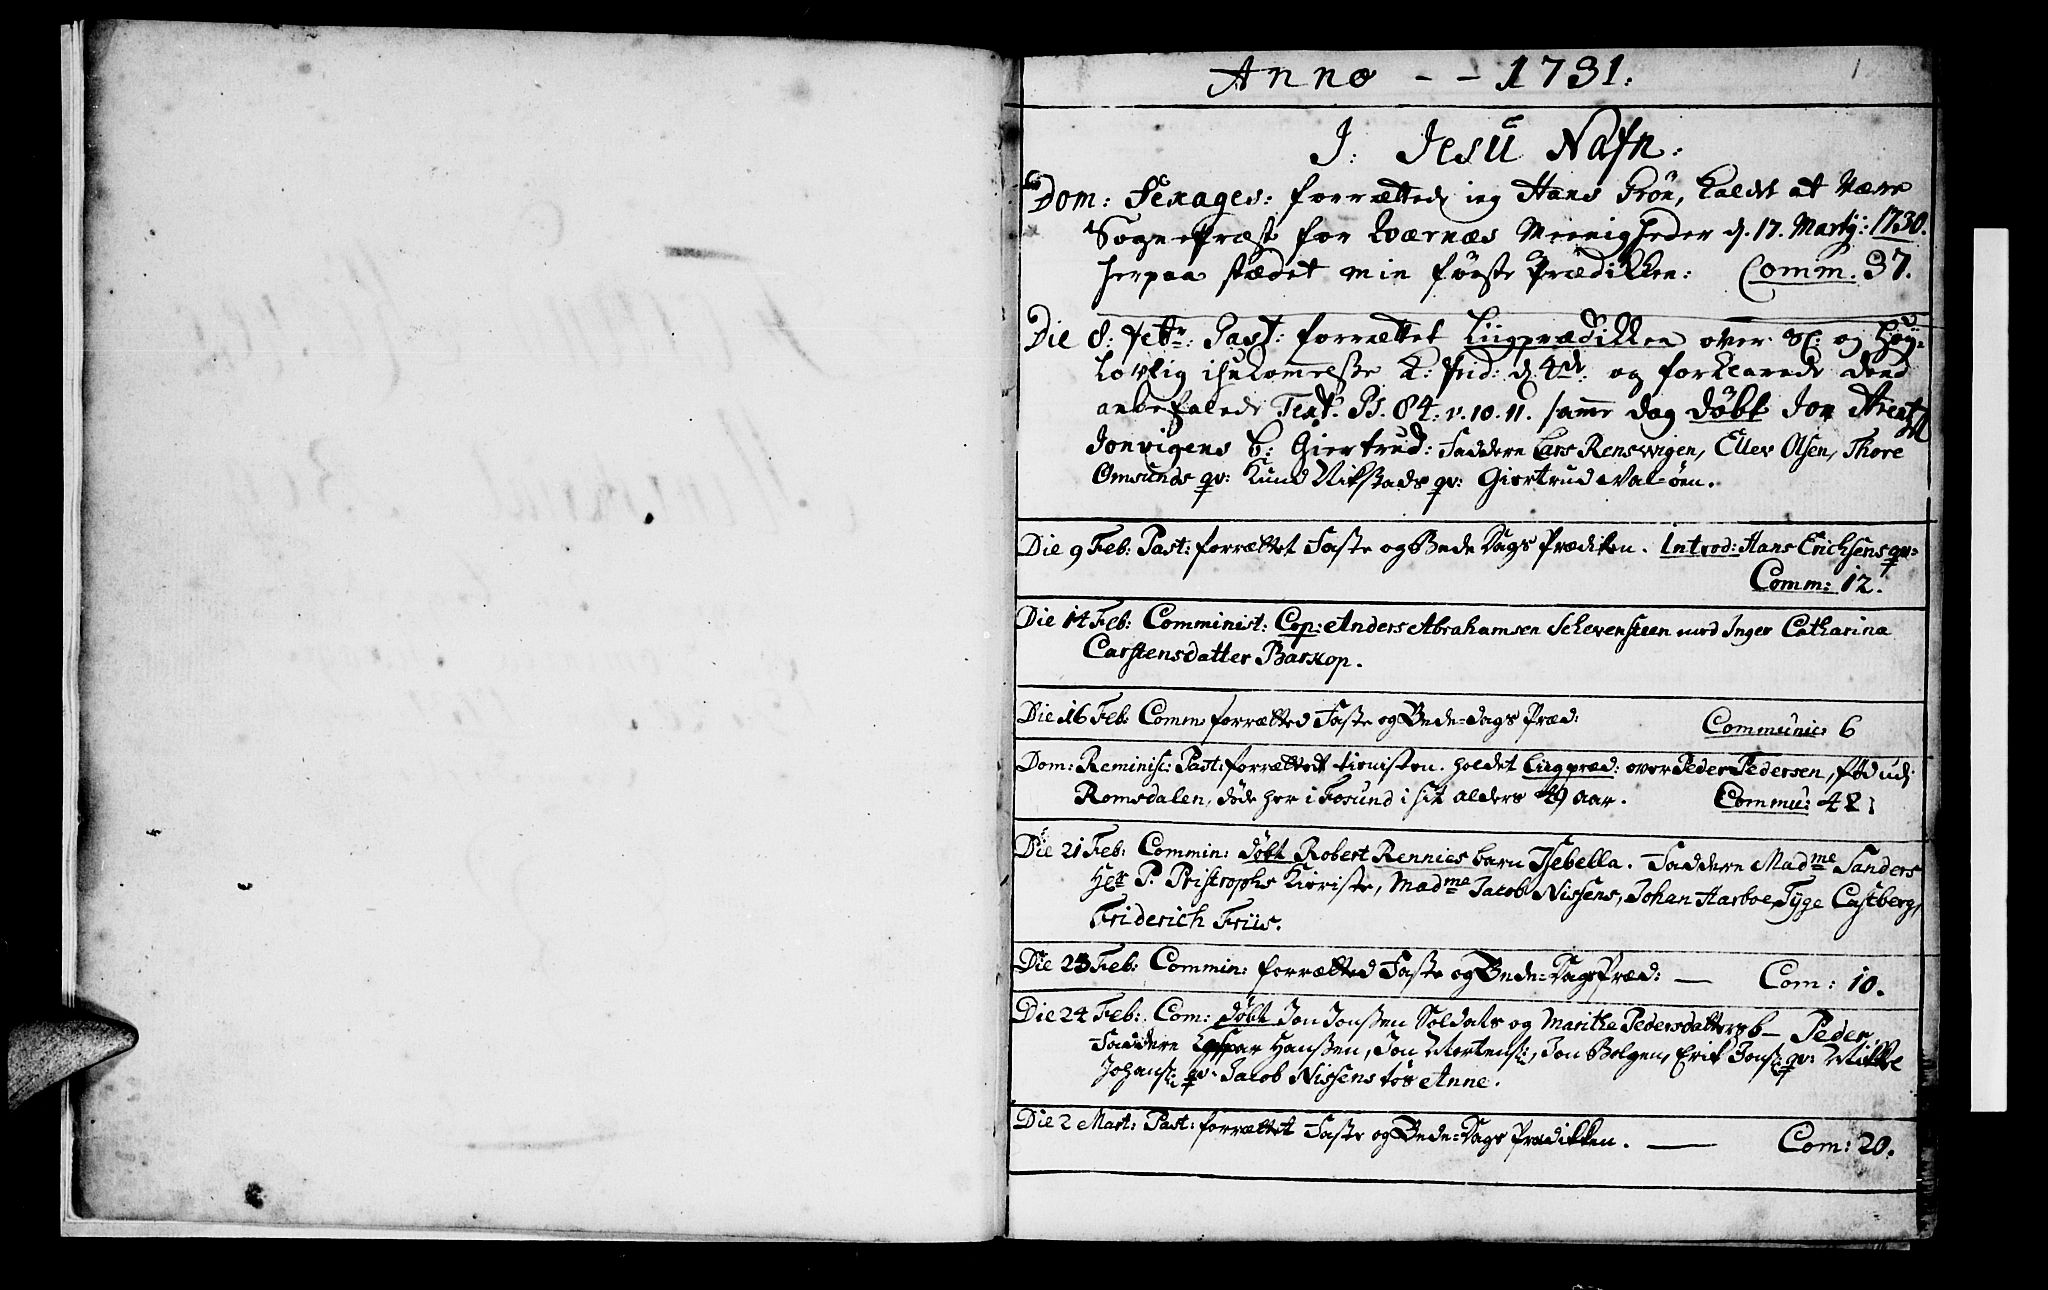 Anno - - 1731.
1
J. Jesu Nafn.
Dom: Sexages: forrættede ieg Hans kaldet at være
Sognepræst for Qvernæs Meenigheder d. 17. Martij: 1730.
herpaa stædet min første Prædikken: Comm. 37.
Die 8. Febr. Past: forrættet Liigprædikken over Sl: og høy-
lovlig ihukommelsse K: Frid: d. 4de. og forklarede dend
anbefalede Text. Ps. 84. v. 10. 11. samme dag døbt Jon
Jonvigens b: Giertrud: Faddere Lars Renswigen, Ellev Olsen, Thore
Omsunds qv: Knud Nikstads qv: Giertrud Val-øen.
Die 9 Feb: Past: forrættet Faste og Bede Dags Prædiken. Introd: Hans Erichsens qv:
Comm: 12.
Die 14 Feb: Comminist: Cop: Anders Abrahamsen Schevensteen med Inger Catharina
Carstensdatter Barkop.
Die 16 Feb: Comm: forrætted Faste og Bede-dags Præd: Communic: 6
Dom: Reminisc: Past: forrættedt tienisten. holdet Liigpræd: over Peder Pedersen, fød udj
Romsdalen, døde her i Fosund i sit alders 49 aar. Commu: 42:
Die 21 Feb: Commin: døbt Robert Rennies barn Isebella. Faddere Madme Sanders
Her P. Kieriste, Madme Jacob Nissens, Johan Aarboe, Tyge Castberg,
Friderich Friis.
Die 23 Feb: Commin: forrætted Faste og Bede-Dags Præd: — Com: 10.
Die 24 Feb: Com: døbt Jon Jonssen Soldats og Marithe Pedersdatters b- Peder,
Faddere Hanssen, Jon Mortens:, Jon Bolgen, Erik Jons: qv: Mikkel
Johans: qv: Jacob Nissens tøs Anne.
Die 2 Mart: Past: forrættet Faste og Bede-Dags Prædikken. — Com: 20.